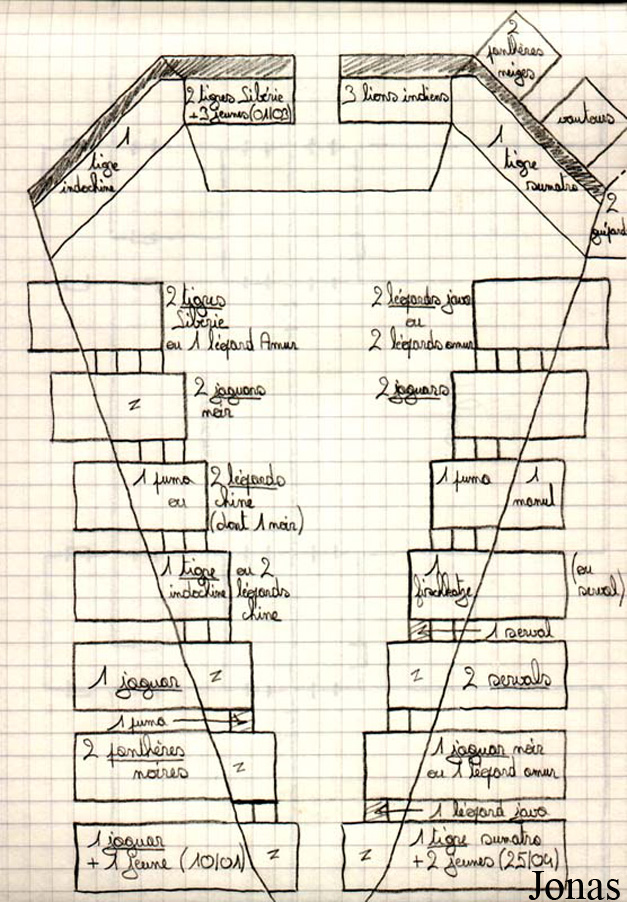 2
panthères
neiges
2 tigres Sibérie
+3 jeunes (01/03)
3 lions indiens
vautours
1
tigre
indochine
1
tigre
sumatra
2
guépard
2 tigres
Sibérie
ou 1 léopard Amur
2 léopards java
ou
2 léopards amur
Z
2 jaguars
noir
2 jaguars
1 puma
ou
2 léopards
chine
(dont 1 noir)
1 puma
1
manul
1 tigre
indochine
ou 2
léopards
chine
1
fischkatze
(ou
serval)
1 serval
1 jaguar
Z
Z
2 servals
1 puma
2 panthères
noires
Z
1 jaguar noir
ou 1 léopard amur
1 léopard java
1 jaguar
+ 1 jeune (10/01)
Z
Z
1 tigre sumatra
+2 jeunes (25/04)
Jonas